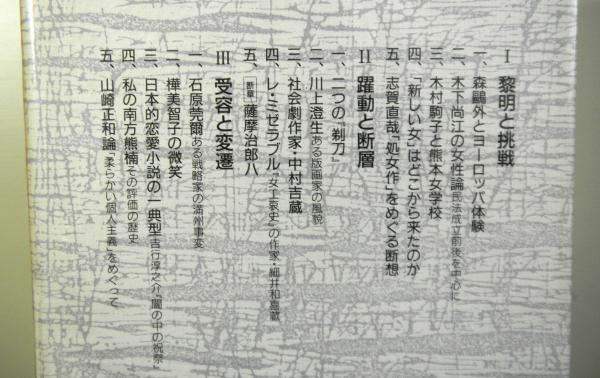 Ⅰ 黎明と挑戦
一、森鷗外とヨーロッパ体験
二、木下尚江の女性論 民法成立前後を中心に
三、木村駒子と熊本女学校
四、「新しい女」はどこから来たのか
五、志賀直哉『処女作』をめぐる断想
Ⅱ 躍動と断層
一、二つの『剃刀』
二、川上澄生 ある版画家の風貌
三、社会劇作家・中村吉蔵
四、レ・ミゼラブル 『女工哀史』の作家・細井和喜蔵
五、断章 薩摩治郎八
Ⅲ 受容と変遷
一、石原莞爾 ある戦略家の満州事変
二、樺美智子の微笑
三、日本的恋愛小説の一典型 吉行淳之介『闇の中の祝祭』
四、私の南方熊楠 その評価の歴史
五、山崎正和論 『柔らかい個人主義』をめぐって